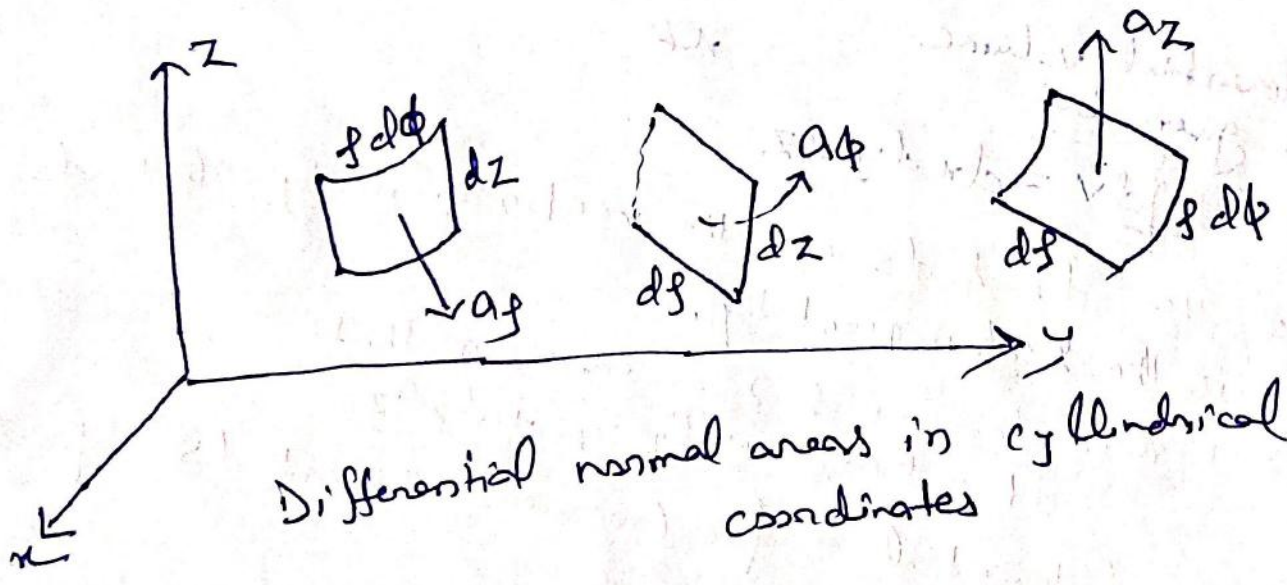 z
ρ dϕ
dz
aρ
aϕ
dz
dρ
az
dρ
ρ dϕ
y
x
Differential normal areas in cyllindrical
coordinates